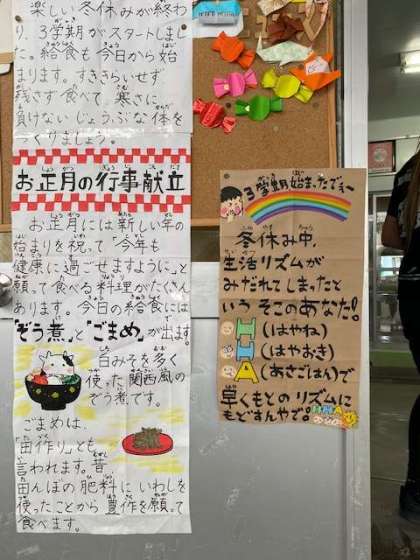 楽しい冬休みが終わ
り、3学期がスタートしまし
た。給食も今日から始
まります。すききらいせず
残さず食べて寒さに
負けないじょうぶな体を
つくりましょう。
お正月の行事献立
お正月には新しい年の
始まりを祝って「今年も
健康に過ごせますように」と
願って食べる料理がたくさん
あります。今日の給食には
「ぞう煮」と「ごまめ」が出ます。
白みそを多く
使った関西風の
ぞう煮です。
ごまめは、
「田作り」とも
言われます。昔
田んぼの肥料にいわしを
使ったことから豊作を願って
食べます。
3学期始まったでぇー
冬休み中、
生活リズムが
みだれてしまったと
いうそこのあなた!
H(はやね)
H(はやおき)
A(あさごはん)で
早くもとのリズムに
もどすんやで。